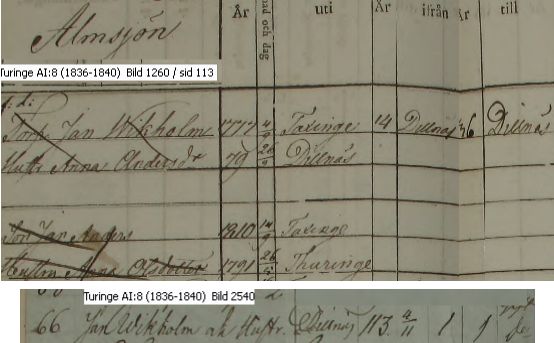 År och dag uti År ifrån År till
Almsjön
Turinge AI:8 (1836-1840) Bild 1260 / sid 113
f. d.
Torp. Jan Wikholm 1777 4/9 Taxinge 14 Dillnäs 36 Dillnäs
Hustr Anna Andersdr 79 26 Dillnäs
Son Jan Anders 1810 14 Taxinge
Hustru Anna Olsdotter 1791 26 Thuringe
Turinge AI:8 (1836-1840) Bild 2540
66 Jan Wikholm och Hustr. Dillnäs 113 4/11 1 1